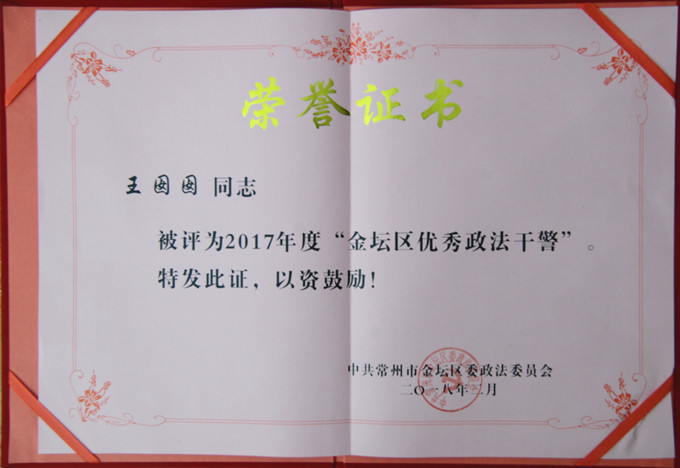 荣誉证书
王囡囡 同志
被评为2017年度“金坛区优秀政法干警”。
特发此证，以资鼓励！
中共常州市金坛区委政法委员会
二〇一八年三月